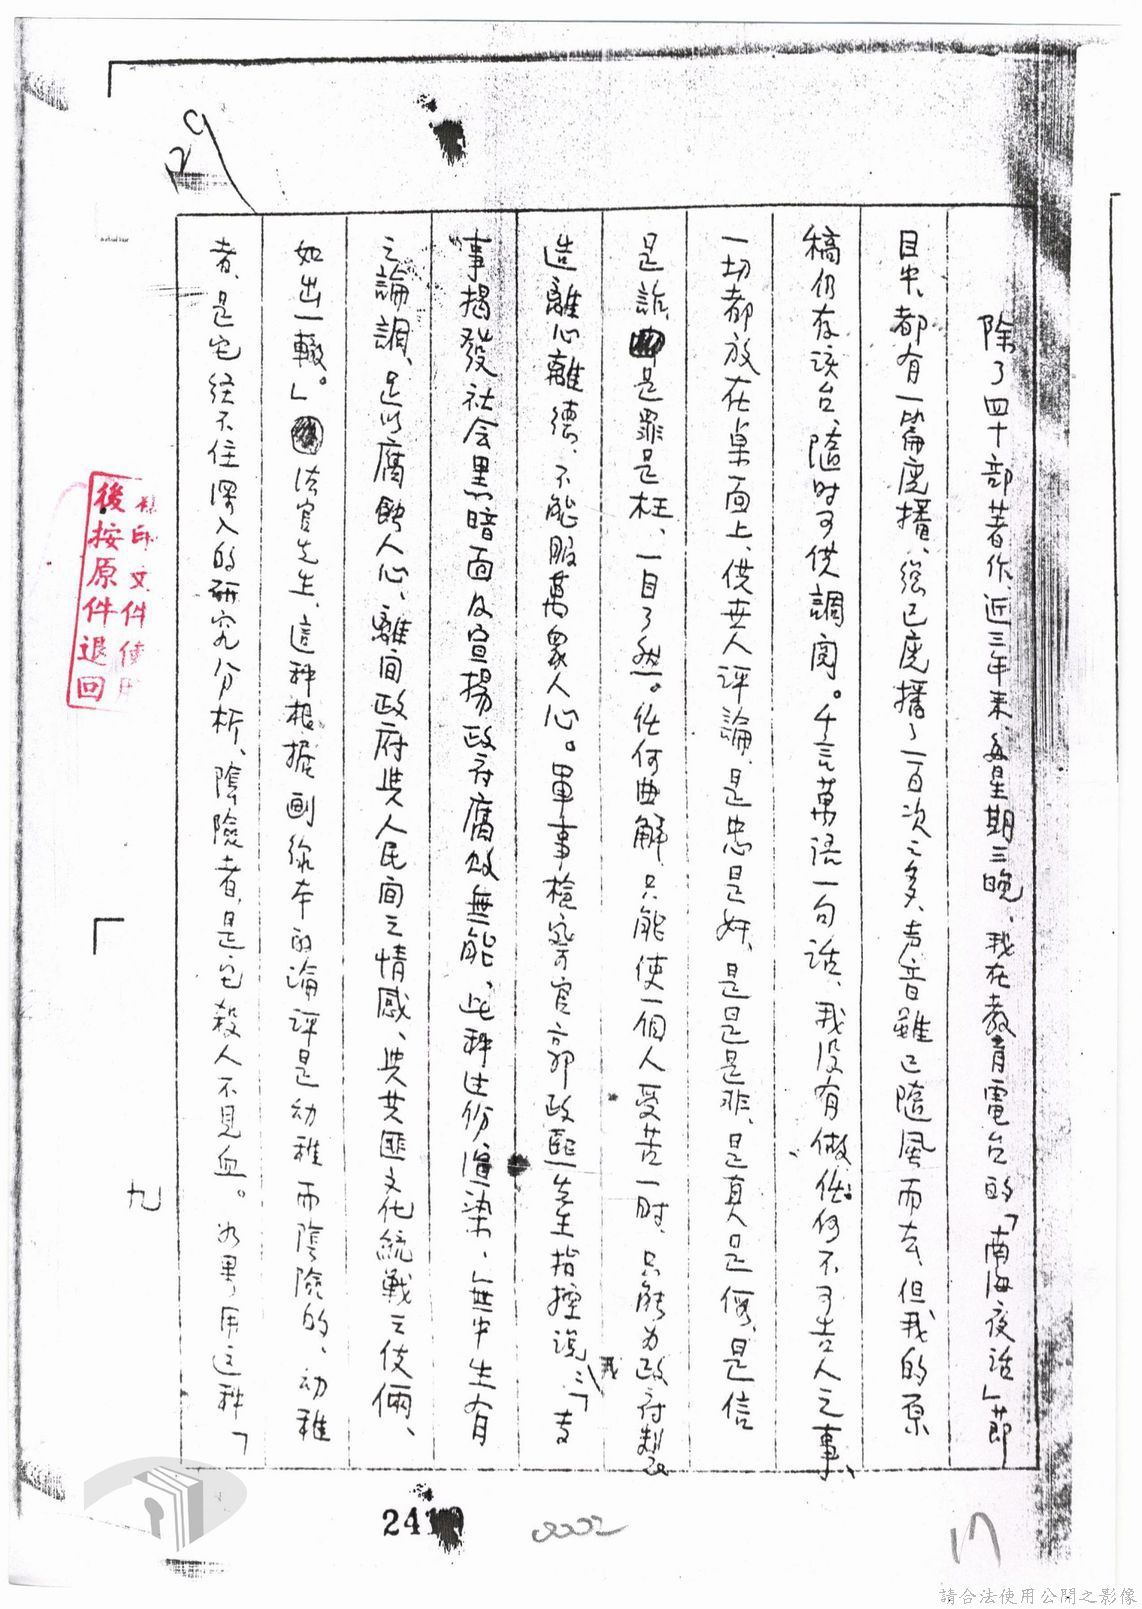 除了四十部著作、近三年来每星期三晚、我在教育電台的「南海夜话」節
目中、都有一篇廣播、總已廣播了一百次之多、声音雖已隨風而去、但我的原
稿仍存该台、隨时可供調阅。千言萬語一句话、我没有做任何不可告人之事、
一切都放在桌面上、供世人评論、是忠是奸、是是是非、是真是假、是信
是詐、是罪是枉、一目了然。任何曲解只能使一個人受苦一时、只能为政府製
造離心離德、不能服萬眾人心。軍事檢察官郭政熙先生指控我说：「专
事揭發社会黑暗面及宣揚政府腐敗無能、此种过份渲染、無中生有
之論調、足以腐蝕人心、離间政府与人民间之情感、与共匪文化統戰之伎倆、
如出一轍。」法官先生、這种根据剧终本的論评是幼稚而陰險的、幼稚
者、是它经不住深入的研究分析、陰險者、是它殺人不見血。如果用这种「
29
九
影印文件使用
後按原件退回
241
0002
17
請合法使用公開之影像